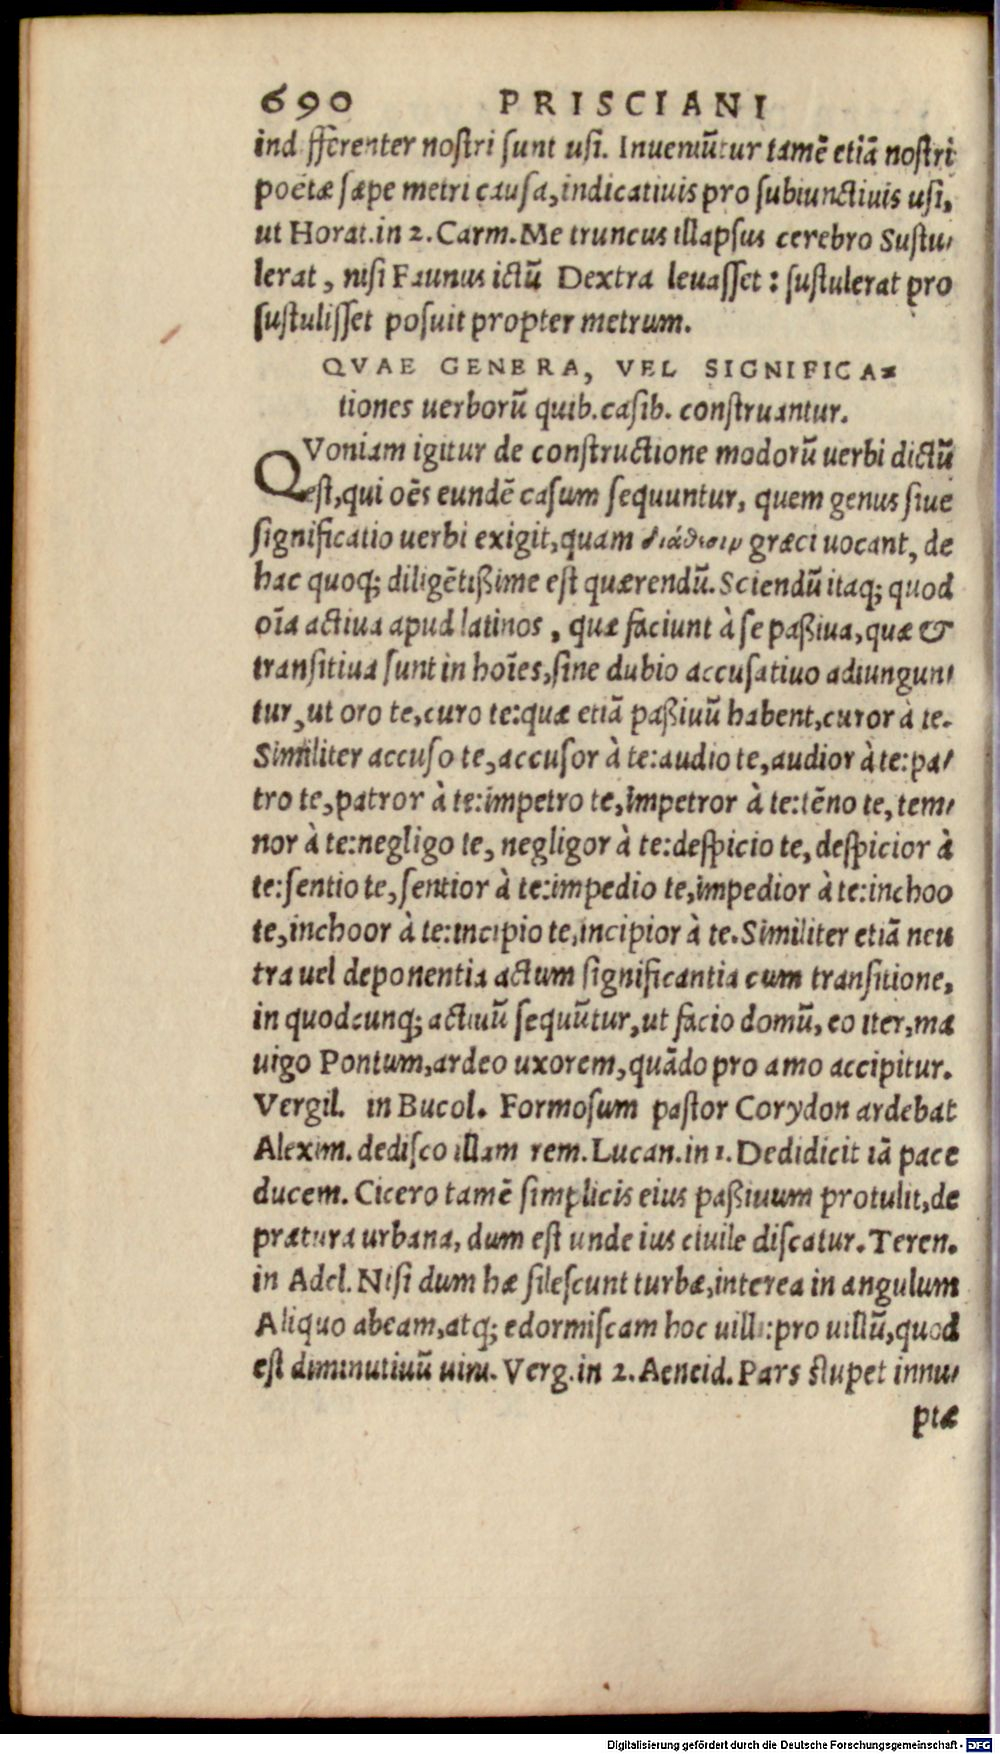 690 PRISCIANI
indifferenter nostri sunt usi. Inueniūtur tamē etiā nostri
poëtæ sæpe metri causa, indicatiuis pro subiunctiuis usi,
ut Horat. in 2. Carm. Me truncus illapsus cerebro Sustu-
lerat, nisi Faunus ictū Dextra leuasset: sustulerat pro
sustulisset posuit propter metrum.
QVAE GENERA, VEL SIGNIFICA-
tiones uerborū quib. casib. construantur.
QVoniam igitur de constructione modorū uerbi dictū
est, qui oēs eundē casum sequuntur, quem genus siue
significatio uerbi exigit, quam διάθεσιν græci uocant, de
hac quoq; diligētißime est quærendū. Sciendū itaq; quod
oīa actiua apud latinos, quæ faciunt à se paßiua, quæ &
transitiua sunt in hoīes, sine dubio accusatiuo adiungun-
tur, ut oro te, curo te: quæ etiā paßiuū habent, curor à te.
Similiter accuso te, accusor à te: audio te, audior à te: pa-
tro te, patror à te: impetro te, impetror à te: tēno te, tem-
nor à te: negligo te, negligor à te: despicio te, despicior à
te: sentio te, sentior à te: impedio te, impedior à te: inchoo
te, inchoor à te: incipio te, incipior à te. Similiter etiā neu
tra uel deponentia actum significantia cum transitione,
in quodcunq; actiuū sequūtur, ut facio domū, eo iter, ma
uigo Pontum, ardeo uxorem, quādo pro amo accipitur.
Vergil. in Bucol. Formosum pastor Corydon ardebat
Alexim. dedisco illam rem. Lucan. in 1. Dedidicit iā pace
ducem. Cicero tamē simplicis eius paßiuum protulit, de
prætura urbana, dum est unde ius ciuile discatur. Teren.
in Adel. Nisi dum hæ silescunt turbæ, interea in angulum
Aliquo abeam, atq; edormiscam hoc uilli: pro uillū, quod
est diminutiuū uini. Verg. in 2. Aeneid. Pars stupet innu-
ptæ
Digitalisierung gefördert durch die Deutsche Forschungsgemeinschaft - DFG